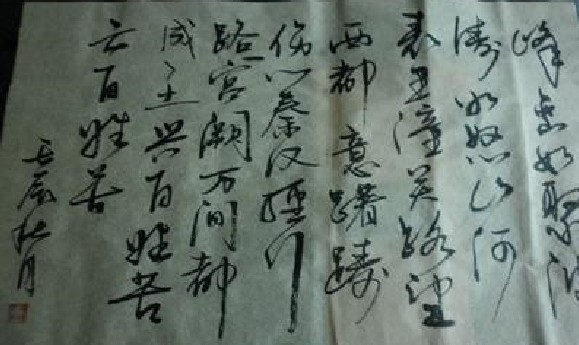 峰峦如聚波
涛如怒山河
表里潼关路望
西都意躇踌
伤心秦汉經行
路宫阙万间都
成土兴百姓苦
亡百姓苦
壬辰秋月